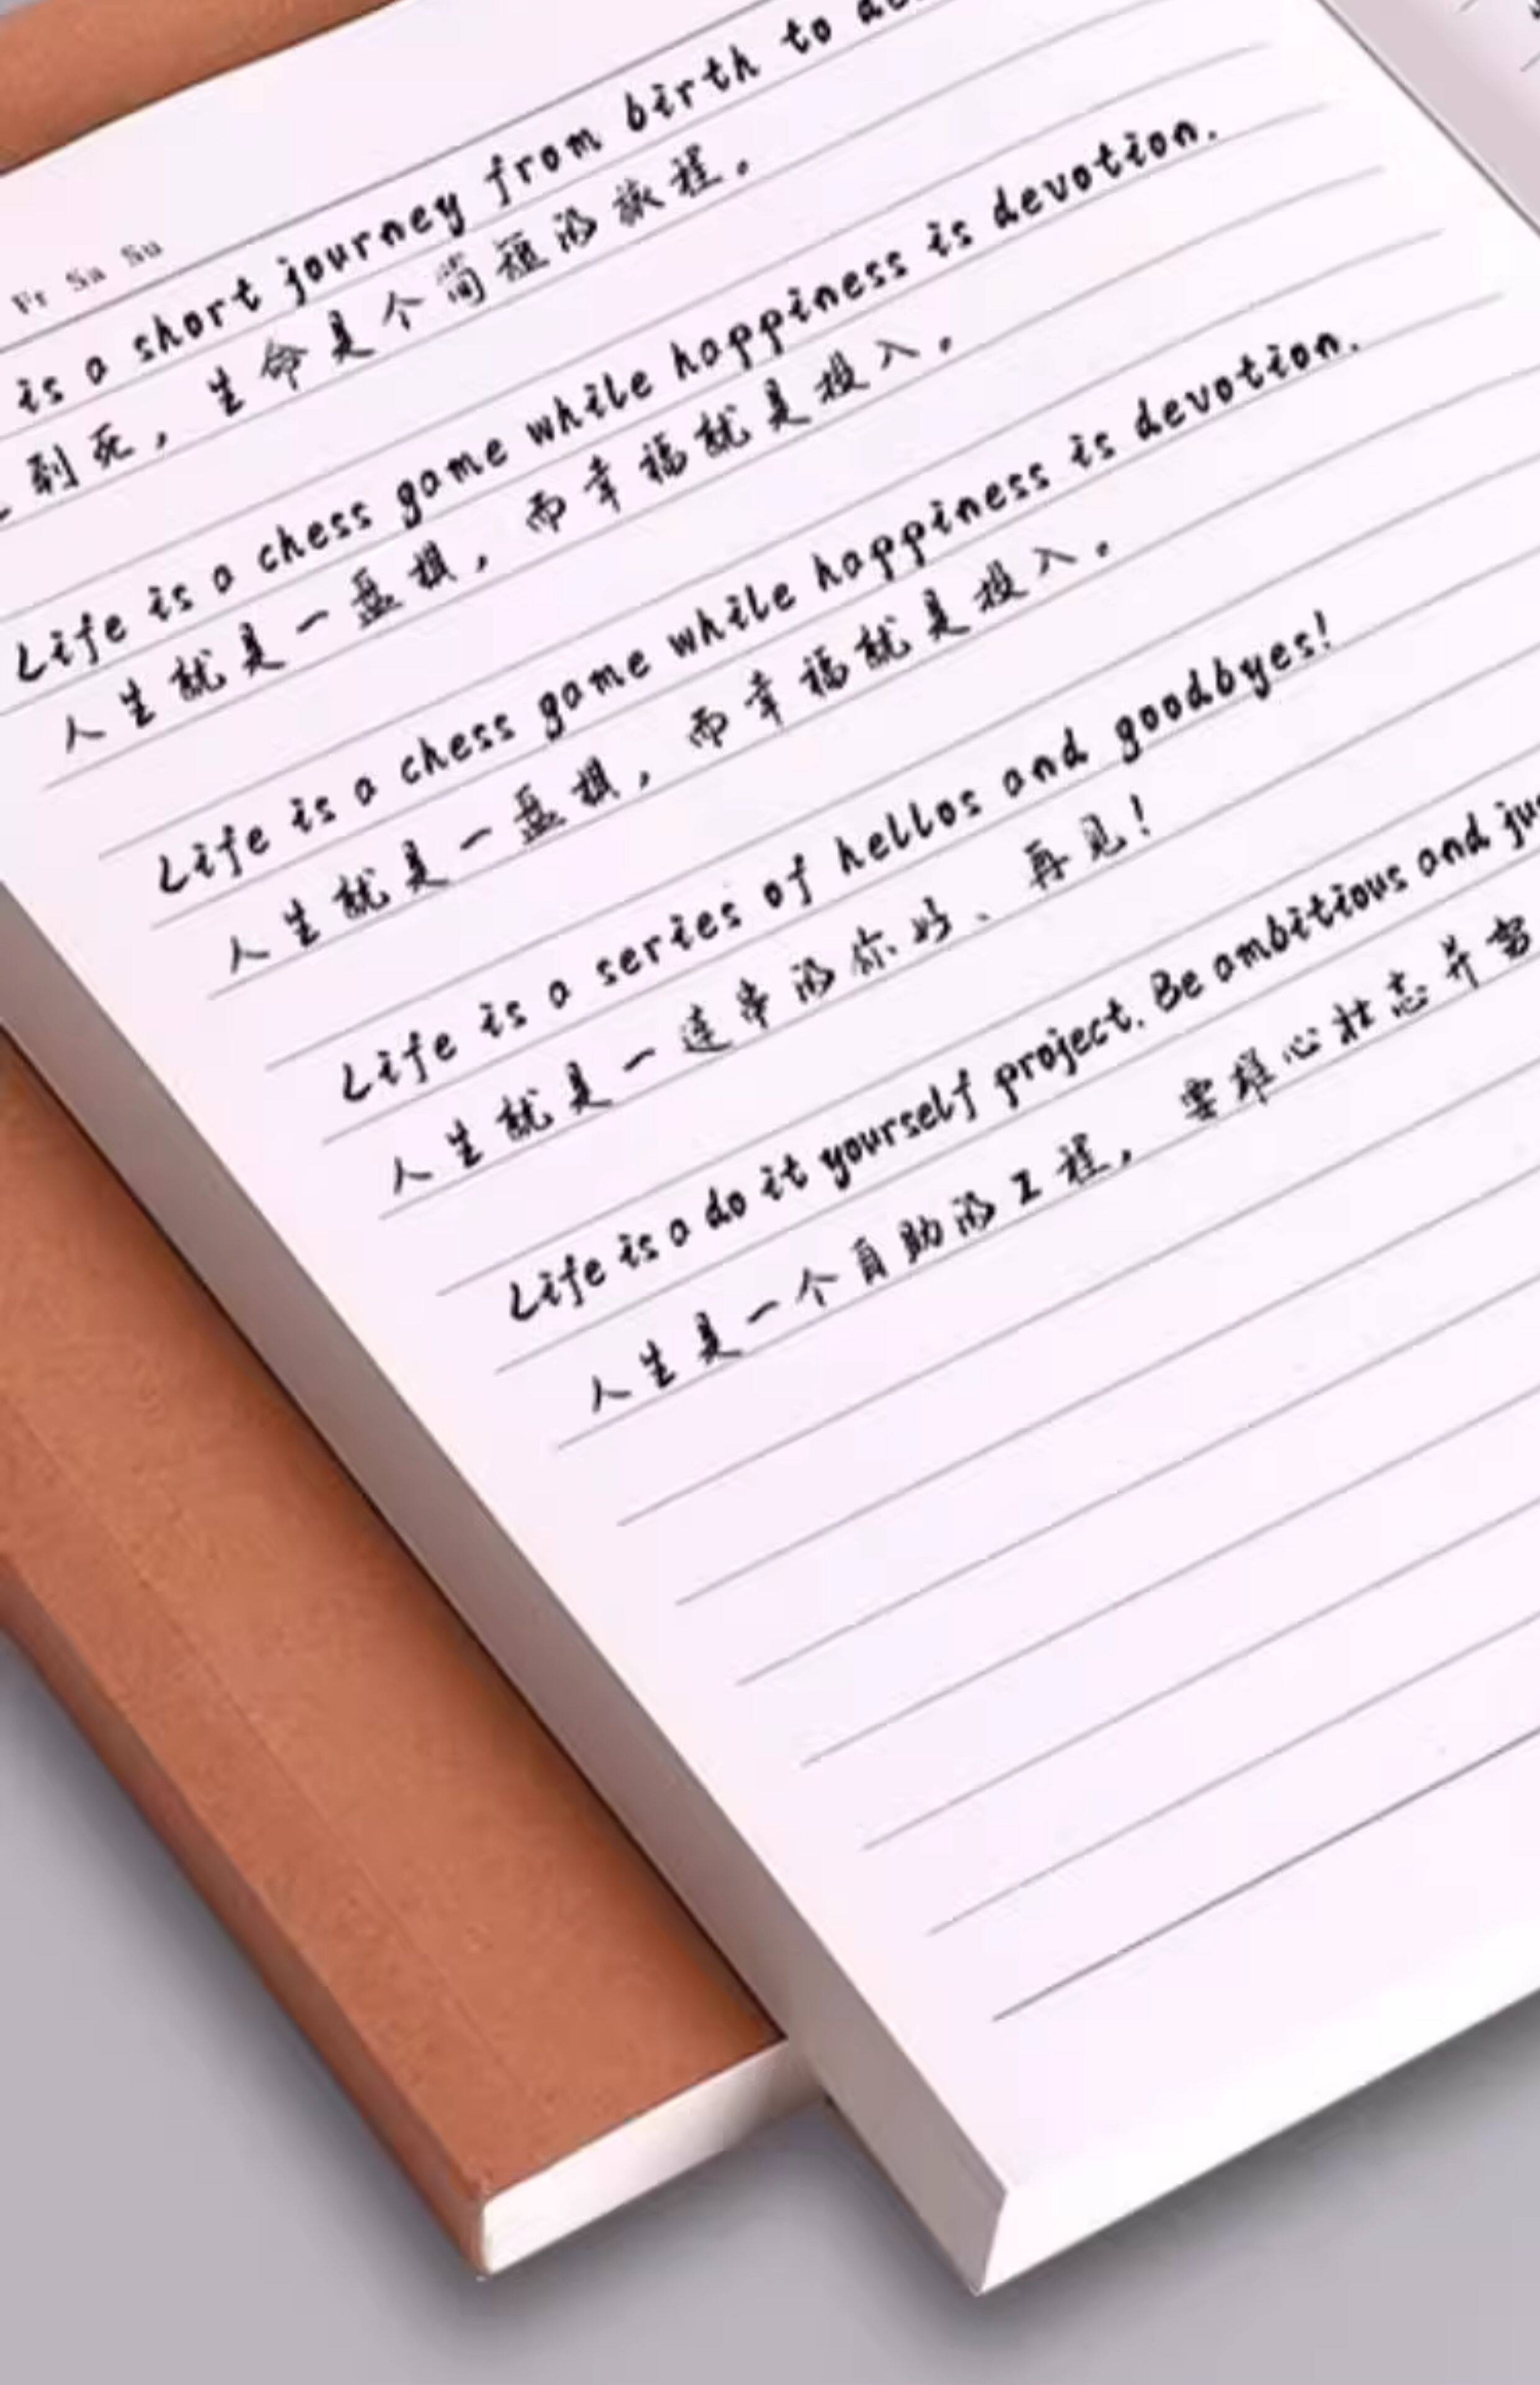 Fr Sa Su
is a short journey from birth to
到死，生命是个简短的旅程。
Life is a chess game while happiness is devotion.
人生就是一盘棋，而幸福就是投入。
Life is a chess game while happiness is devotion.
人生就是一盘棋，而幸福就是投入。
Life is a series of hellos and goodbyes!
人生就是一连串的你好、再见！
Life is a do it yourself project. Be ambitious and
人生是一个自助的工程，要雄心壮志并